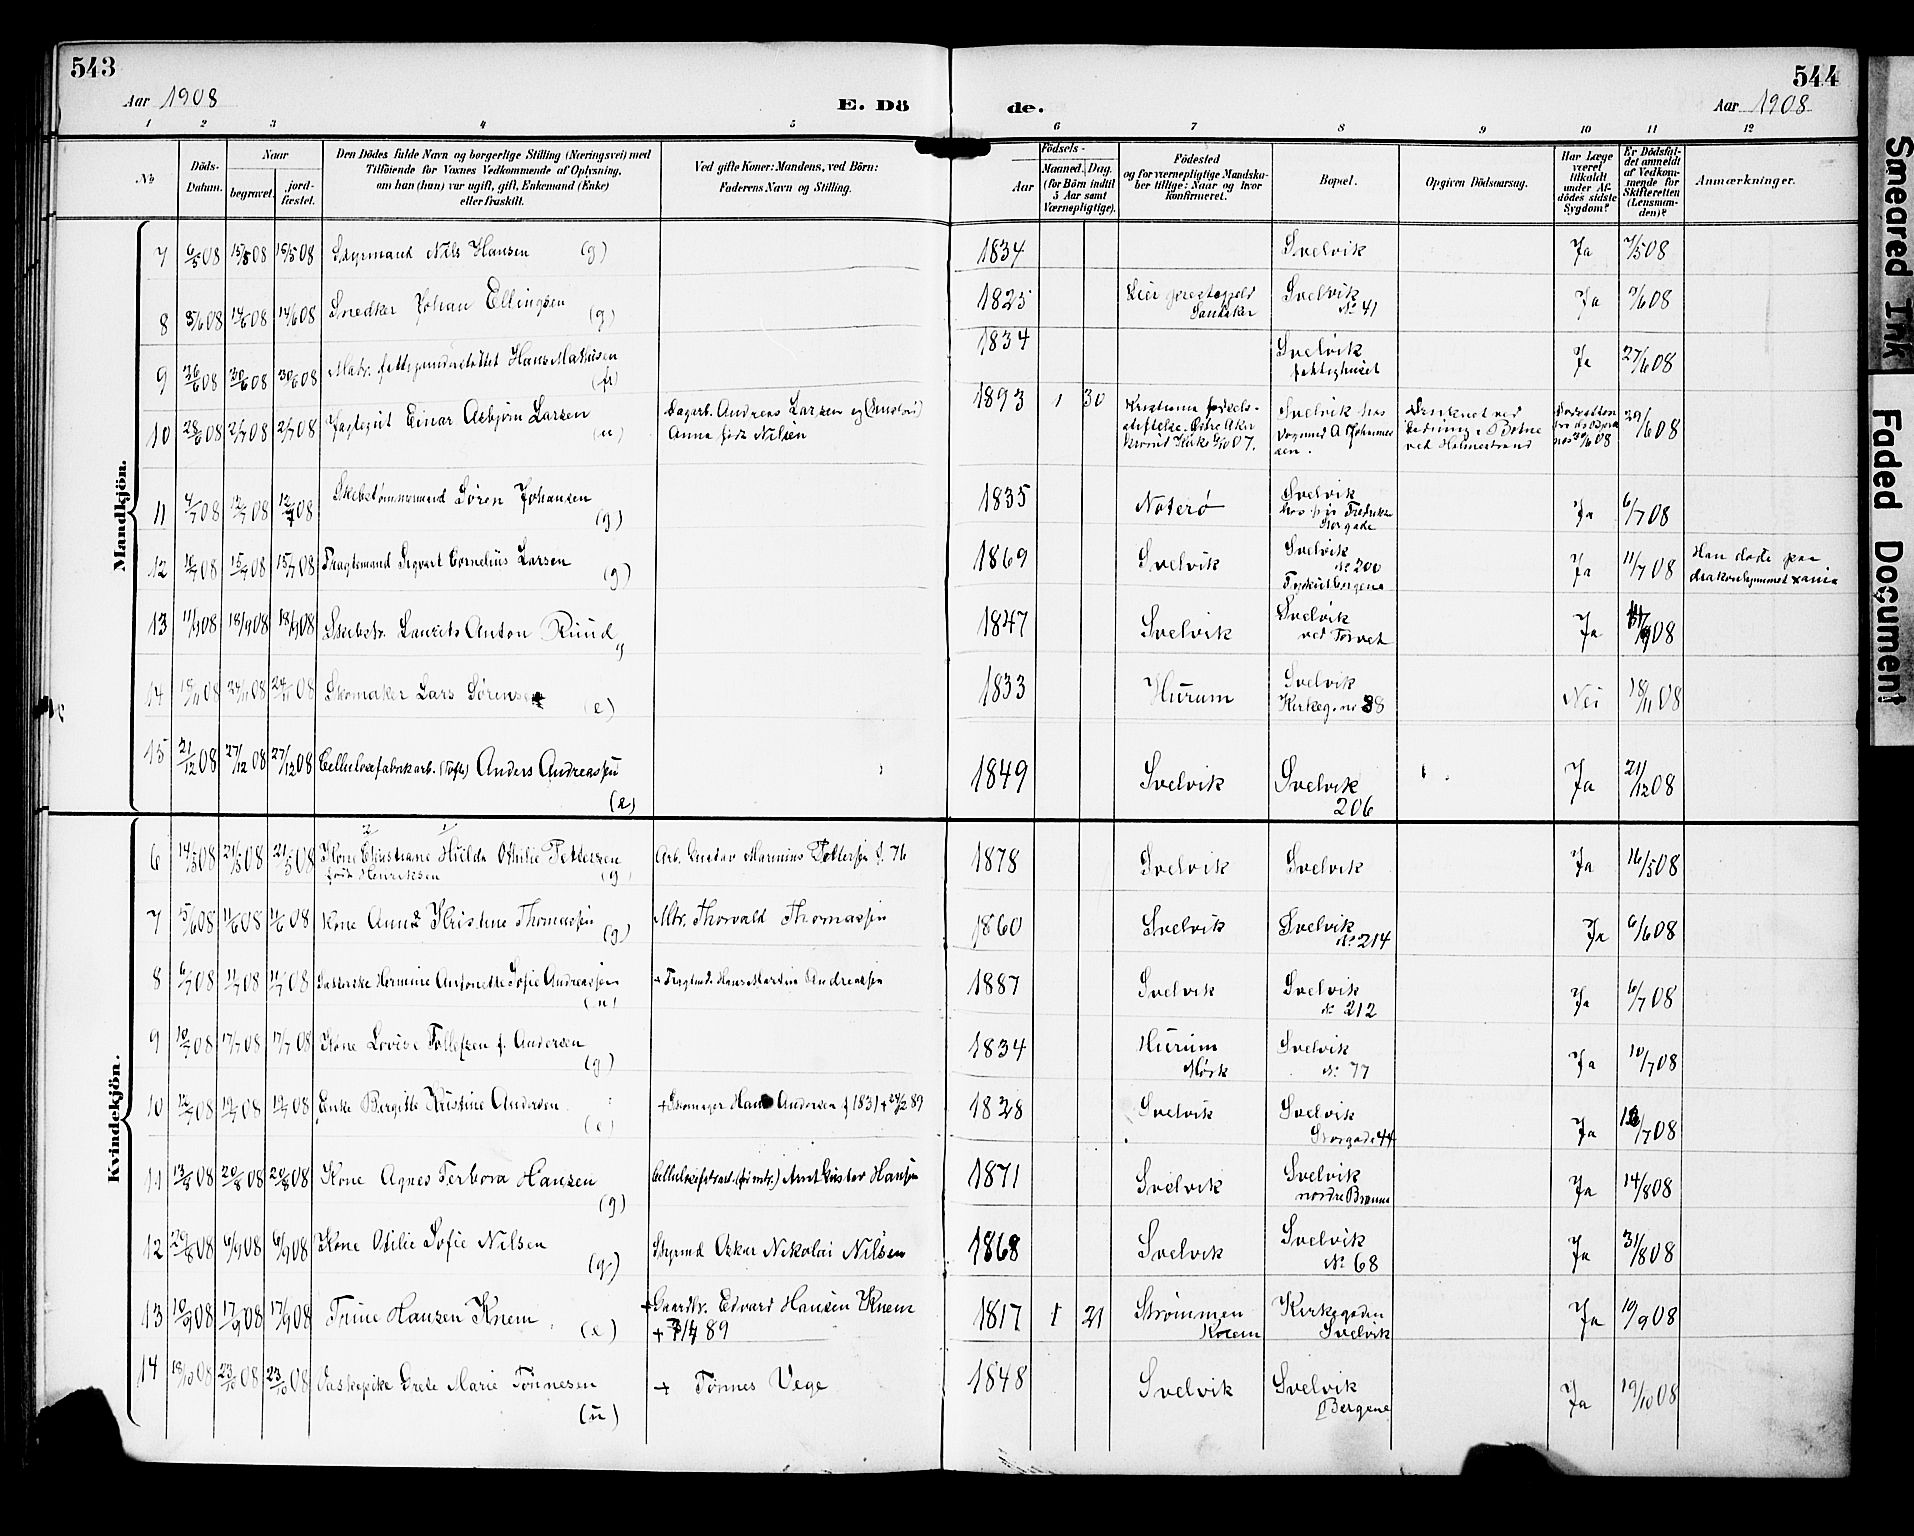 543
544
Aar 1908
E. Dö
de.
Aar 1908
1 2 3 4 5 6 7 8 9 10 11 12
No
Döds-
Datum.
Naar
begravet.
jord-
fæstet.
Den Dödes fulde Navn og borgerlige Stilling (Næringsvei) med
Tilföiende for Voxnes Vedkommende af Oplysning,
om han (hun) var ugift, gift, Enkemand (Enke)
eller fraskilt.
Ved gifte Koner: Mandens, ved Börn:
Faderens Navn og Stilling.
Födsels-
Aar
Maaned. Dag.
(for Börn indtil
5 Aar samt
Værnepligtige).
Födested
og for værnepligtige Mandsku-
ber tillige: Naar og hvor
konfirmeret.
Bopæl.
Opgiven Dödsaarsag.
Har Læge
været
tilkaldt
under Af-
dödes sidste
Sygdom?
Er Dödsfal-
det anmeldt
af Vedkom-
mende for
Skifteretten
(Lensman-
den)?
Anmærkninger.
Mandkjön.
7 6/5 08 15/5 08 15/5 08 Styrmand Nils Hansen (g) 1834 Svelvik Ja 7/5 08
8 14/6 08 14/6 08 Snedker Johan Ellingsen (g) 1825 Lier Svelvik No 41 Ja 9/6 08
9 26/6 08 30/6 08 30/6 08 Matr. Hans Mathisen 1834 Svelvik fattighuset Ja 27/6 08
10 28/6 08 2/7 08 2/7 08 Jagtegut Einar Asbjørn Larsen (u) Dagarb. Andreas Larsen og
Anna født Nilsen 1893 1 30 Svelvik hos 29/6 08
ved Holmestrand
11 4/7 08 12/7 08 12/7 08 Søren Johansen (g) 1835 Nøterø Svelvik Storgade Ja 6/7 08
12 15/7 08 15/7 08 Fragtemand Sigvart Cornelius Larsen (g) 1869 Svelvik Svelvik No 200 Ja 11/7 08 Han døde paa
13 11/9 08 18/9 08 18/9 08 Skibsfr. Laurits Anton Ruud g 1847 Svelvik Svelvik ved Torvet Ja
14 24/11 08 24/11 08 Skomaker Lars Sørensen (e) 1833 Hurum Svelvik Kirkeg. no 38 Nei 18/11 08
15 21/12 08 27/12 08 27/12 08 Cellulosefabrikarb. (Tofte) Anders Andreassen (e) 1849 Svelvik Svelvik 206 Ja 21/12 08
Kvindekjön.
6 14/5 08 21/5 08 21/5 08 Kone Christiane Hulda Othilie Pettersen
født Henriksen (g) Arb. Gustav Marinius Pettersen f. 76 1878 Svelvik Svelvik Ja 16/5 08
7 5/6 08 11/6 08 11/6 08 Kone Anna Kristine Thomassen (g) Mtr. Thorvald Thomassen 1860 Svelvik Svelvik No 214 Ja 6/6 08
8 6/7 08 11/7 08 11/7 08 Hermine Antonette Sofie Andreassen (u) + Fragtmd. Hans Martin Andreassen 1887 Svelvik Svelvik No 212 Ja 6/7 08
9 10/7 08 17/7 08 17/7 08 Kone Lovise Tollefsen f. Andersen (g) 1834 Hurum Mørk Svelvik No 77 Ja 10/7 08
10 12/7 08 Enke Bergitte Kristine Andersen (e) + Skomager Hans Andersen f 1831 1828 Svelvik Svelvik Storgade 44 Ja
11 13/8 08 20/8 08 20/8 08 Kone Agnes Terbora Hansen (g) Arnt Gustav Hansen 1871 Svelvik Svelvik nordre Ja 14/8 08
12 29/8 08 6/9 08 6/9 08 Kone Otilie Sofie Nilsen (g) Styrmd Oskar Nikolai Nilsen 1868 Svelvik Svelvik No 68 Ja 31/8 08
13 10/9 08 17/9 08 17/9 08 Trine Hansen Knem (e) + Gaardbr. Edvard Hansen Knem 1817 1 21 Strømmen Kirkegaden Svelvik Ja 10/9 08
14 18/10 08 23/10 08 23/10 08 Grete Marie Tønnesen (u) + Tønnes Vege 1848 Svelvik Svelvik Bergene Ja 19/10 08
Smeared Ink
Faded Document